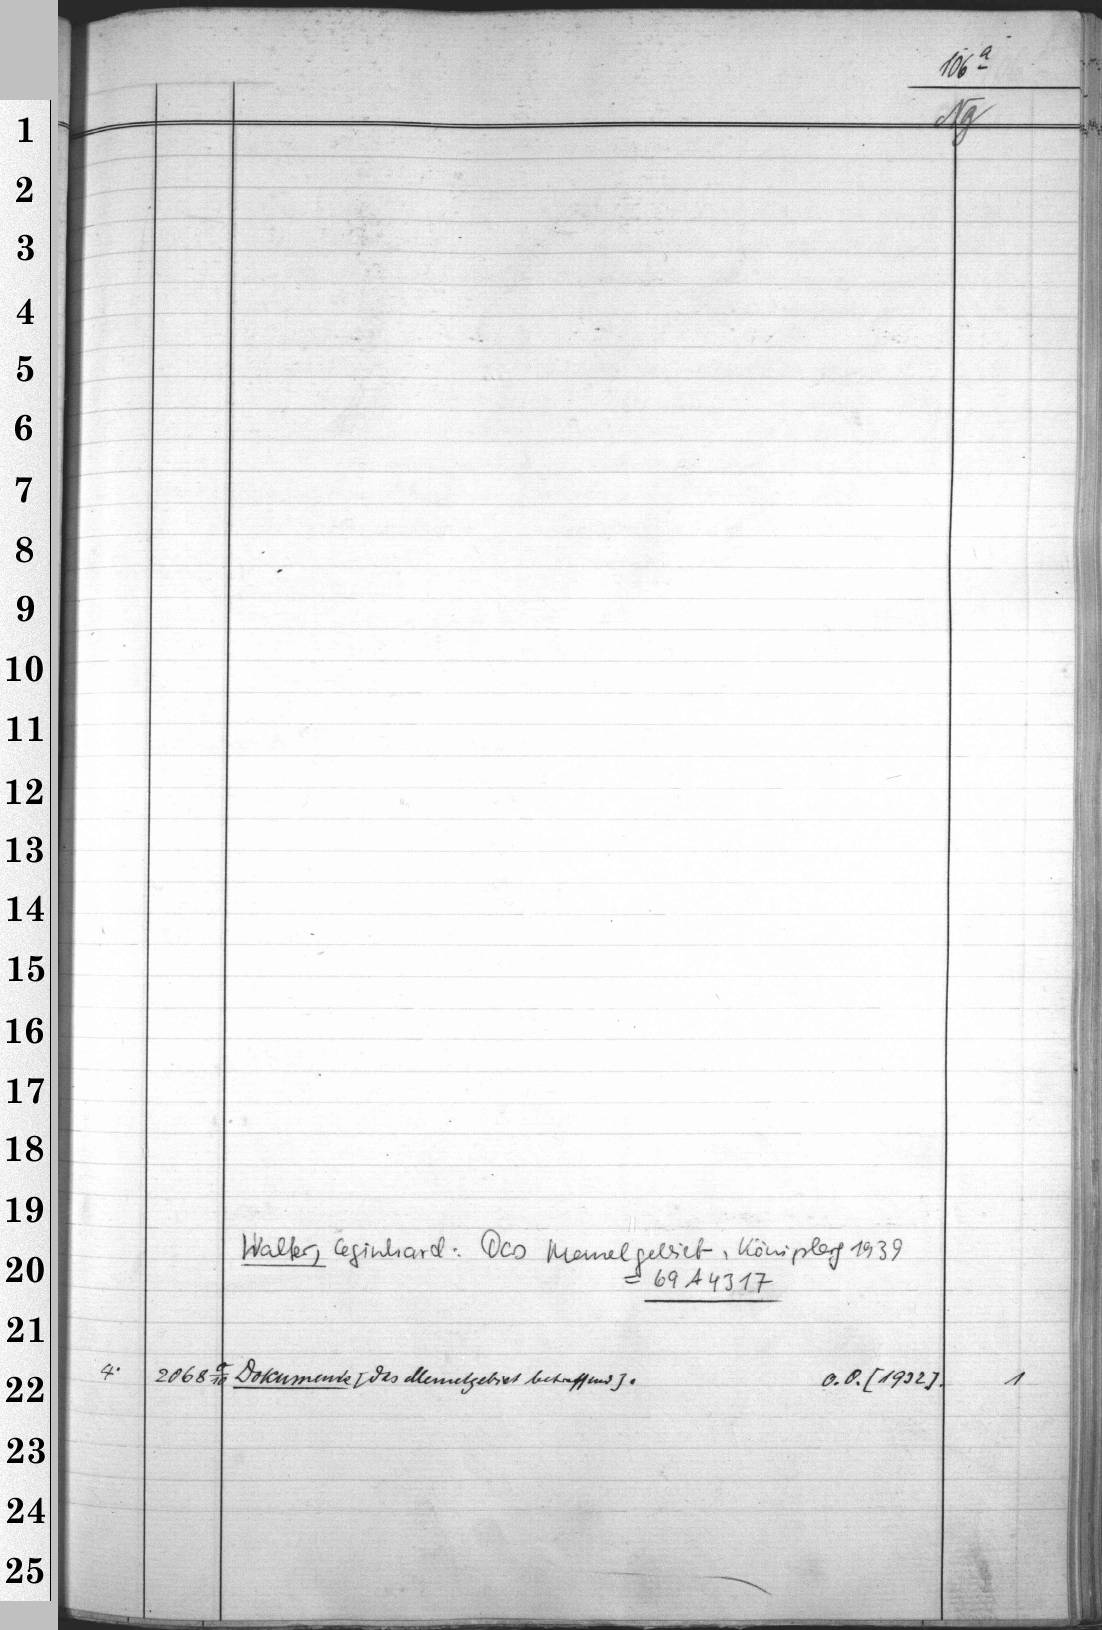 106 a
Ng
1
2
3
4
5
6
7
8
9
10
11
12
13
14
15
16
17
18
19
Walter, Eginhard: Das Memelgebiet, Königsberg 1939
20
= 69 A 4317
21
4° 2068 a/10 Dokumente [das Memelgebiet betreffend]. o. O. [1932]. 1
22
23
24
25